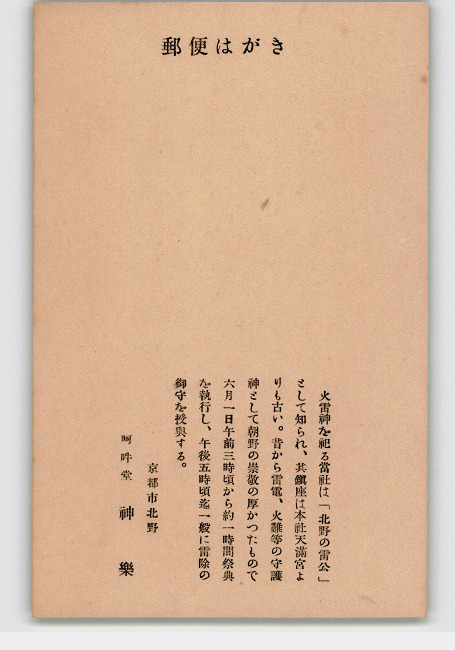 郵便はがき
火雷神を祀る當社は「北野の雷公」
として知られ、其鎭座は本社天滿宮よ
りも古い。昔から雷電、火難等の守護
神として朝野の崇敬の厚かつたもので
六月一日午前三時頃から約一時間祭典
を執行し、午後五時頃迄一般に雷除の
御守を授與する。
京都市北野
呵吽堂 神樂